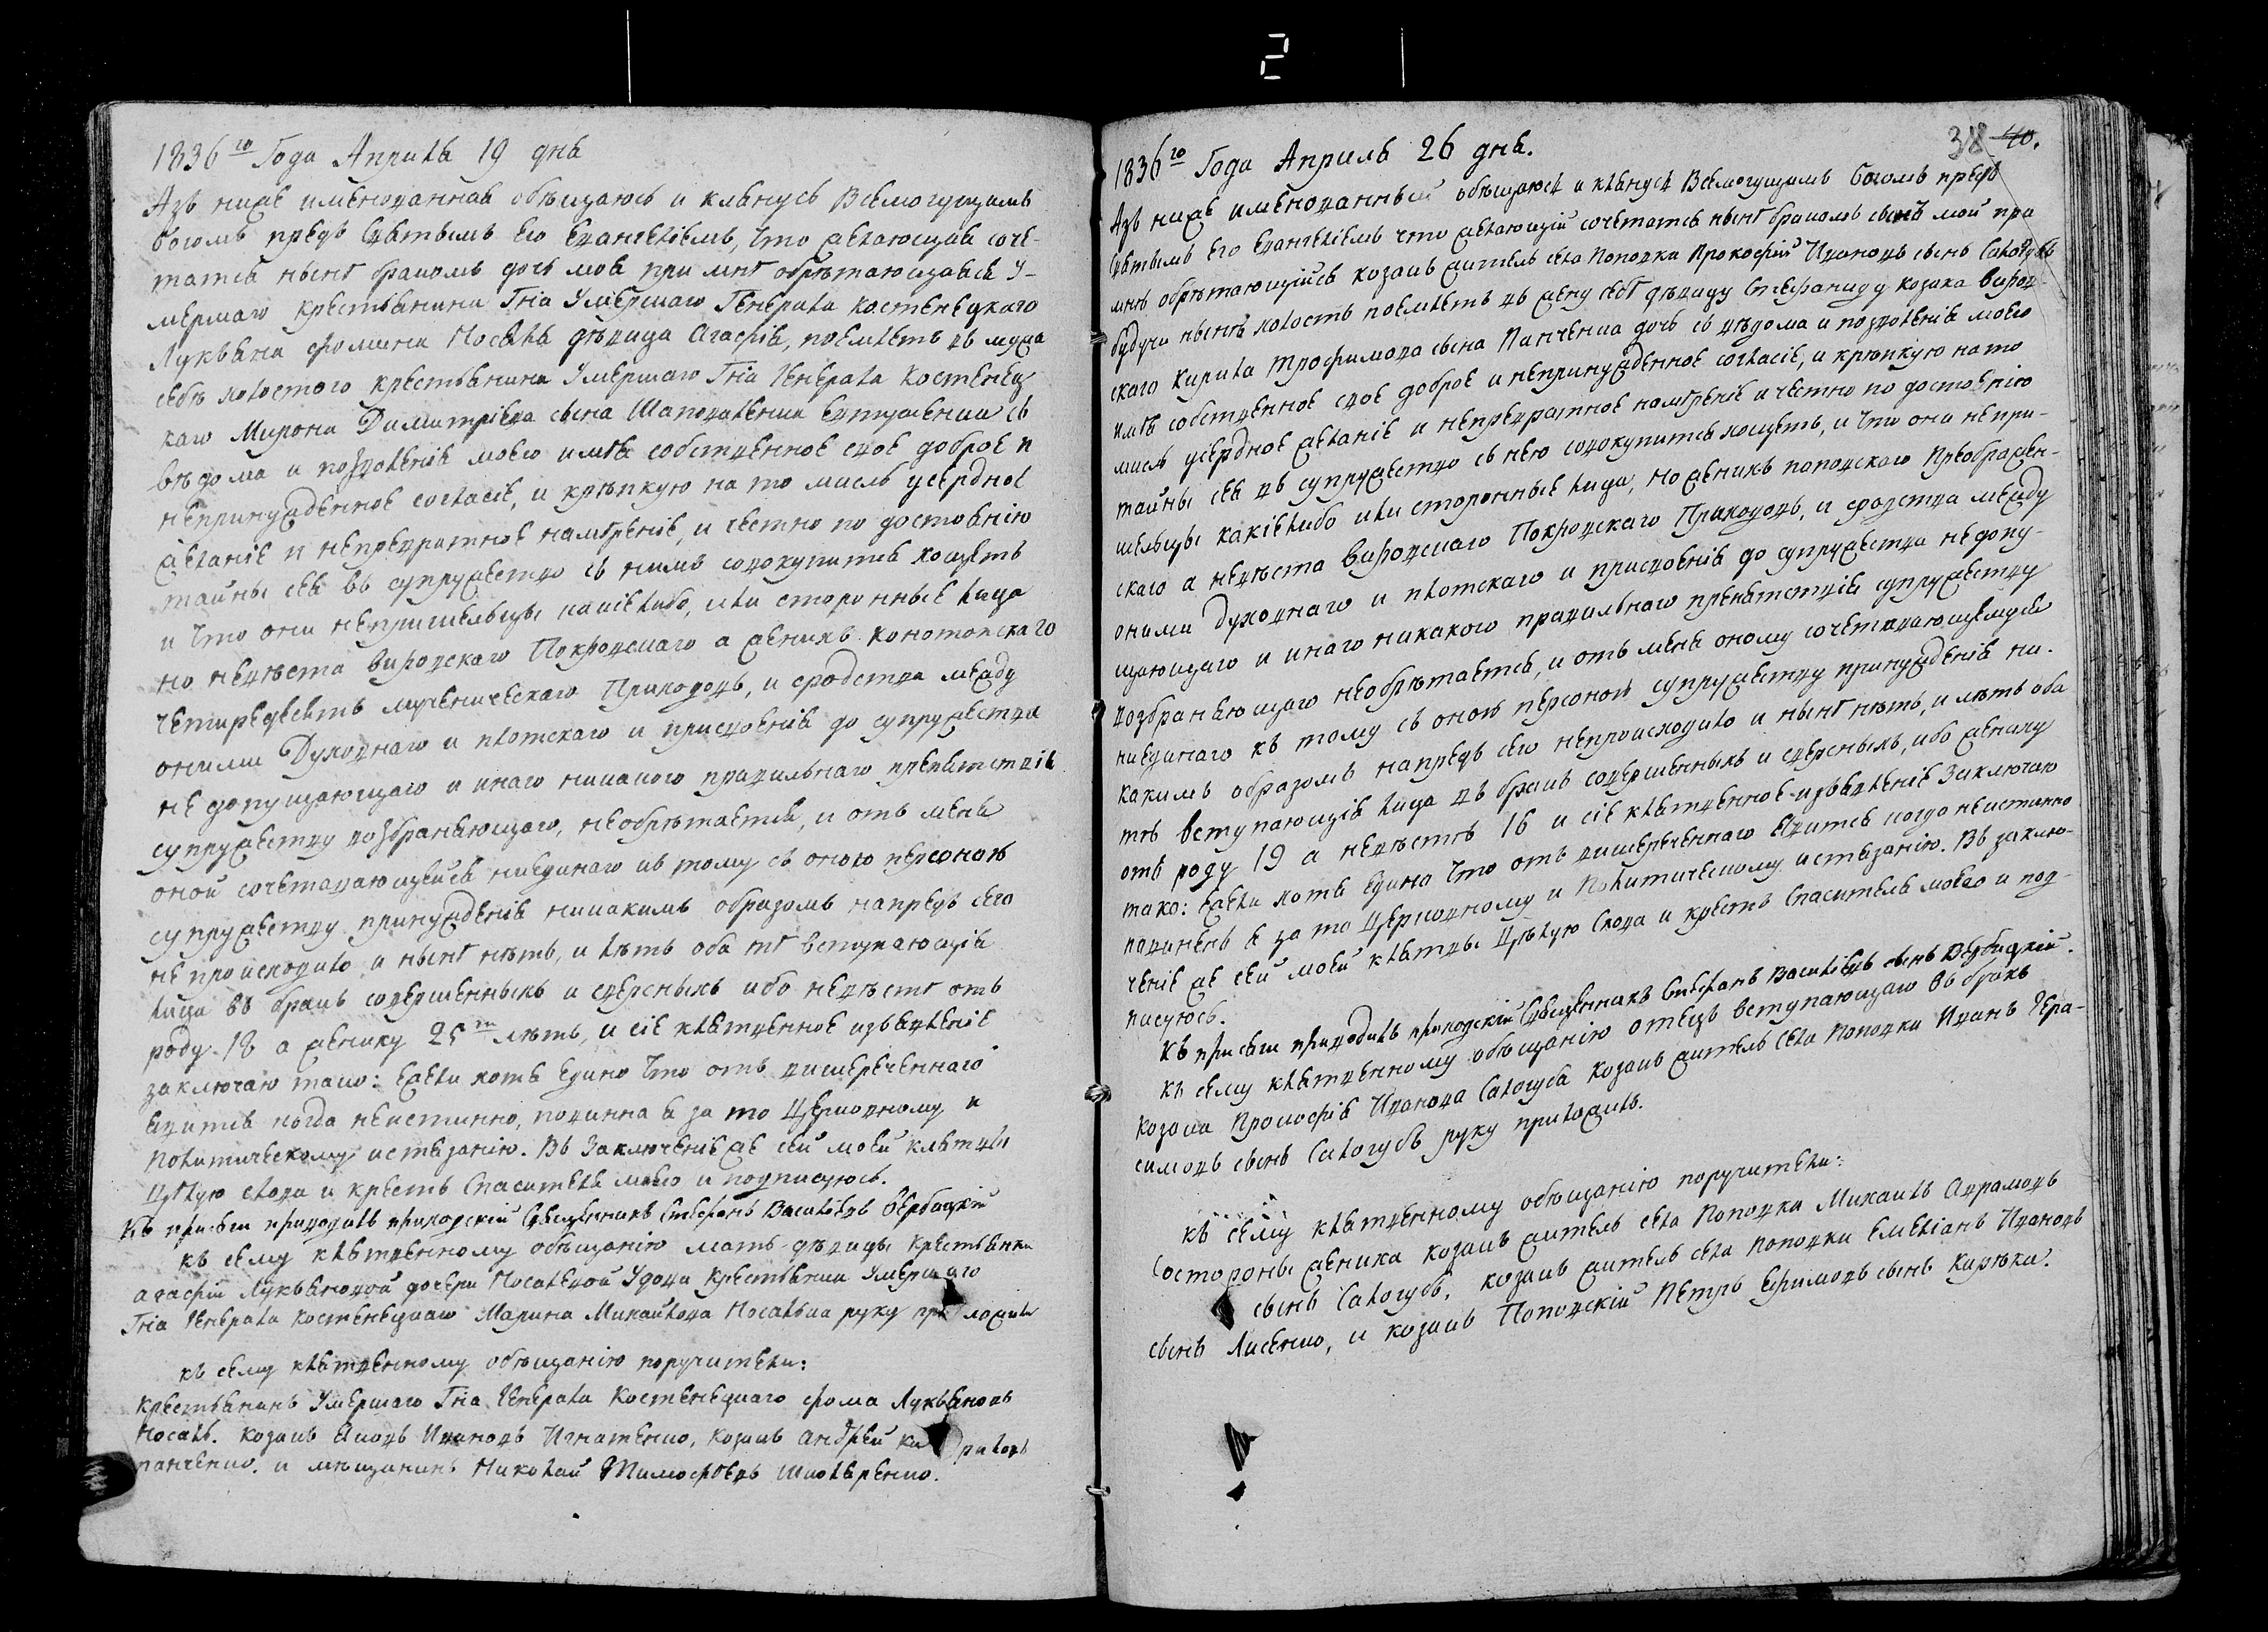 2
1836го Года Априля 19 дня
Азъ ниже именованная обѣщаюсь и клянусь Всемогущимъ
богомъ предъ святымъ его евангелiемъ, что желающая соче-
татся нынѣ бракомъ дочь моя при мнѣ обрѣтающаяся У-
мершаго крестьянина Гна Умершаго Генерала костенецкаго
Лукьяна фомина Носаля дѣвица Агафiя, поемлетъ въ мужа
себѣ холостого крестьянина Умершаго Гна Генерала Костенец
каго Мирона Димитрiева сына Шаповаленка Евтушенка съ
вѣдома и позволенiя моего имѣя собственное свое доброе и
непринужденное согласiе, и крѣпкую на то мисль усердное
желанiе и непревратное намѣренiе, и честно по достоянiю
тайны сея въ супружество съ нимъ совокупится хощетъ
и что они непришельцы какiелибо, или сторонные лица
но невѣста вировского Покровскаго а женихъ конотопскаго
Четиредесять мученическаго Приходовъ, и сродства между
оними Духовнаго и плотскаго и присвоенiя до супружества
не допущающаго и инаго никакого правильнаго препятствiя
супружеству возбраняющаго, необрѣтается, и отъ мене
оной сочетавающейся ниединаго къ тому съ оною персоною
супружеству принужденiя никакимъ образомъ напредъ сего
не происходило и нынѣ нѣтъ, и лѣтъ оба тѣ вступающiя
лица въ бракъ совершенныхъ и сверсныхъ ибо невѣстѣ отъ
роду 18 а жениху 25ть лѣтъ, и сiе клятвенное изъявленiе
заключаю тако: Ежели хотя едино что отъ вишереченнаго
явится когда неистинно, повинна я за то Церковному и
Политическому истязанiю. Въ Заключенiе же сей моей клятвы
Цѣлую слова и крестъ Спасителя моего и подписуюсь.
Къ присяги приводилъ приходскiй Священникъ Стефанъ Василiевъ Вербицкiй
къ сему клятвенному обѣщанiю мать дѣвицы крестьянки
агафiи Лукьяновой дочери Носалевой Удова крестьянка Умершаго
Гна Генерала Костенецкаго Марина Михайлова Носалька руку приложила
къ сему клятвенному обѣщанiю поручители:
Крестьянинъ Умершаго Гна Генерала Костенецкаго фома Лукьяновъ
Носаль. козакъ Яковъ Ивановъ Игнатенко, козакъ андрей Кириловъ
панченко. и мѣщанинъ Николай Тимофѣевъ Шкляренко.
38 40.
1836го Года Априля 26 дня.
Азъ ниже именованный обѣщаюся и клянуся Всемогущимъ Богомъ предъ
святымъ Его Евангелiемъ что желающiй сочетатся нынѣ бракомъ сынъ мой при
мнѣ обрѣтающiйся козакъ житель села Поповки Прокофiй Ивановъ сынъ Салогубъ
будучи нынѣ холостъ поемлетъ въ жену себѣ дѣвицу Стефаниду козака виров-
ского Кирила Трофимова сына Панченка дочь съ вѣдома и позволенiя моего
имѣя собственное свое доброе и непринужденное согласiе, и крѣпкую на то
мисль усердное желанiе и непревратное намѣренiе и честно по достоянiю
тайны сея въ супружество съ нею совокупится хощетъ, и что они непри-
шельцы какiелибо или сторонные лица, но женихъ поповскаго Преображен-
скаго а невѣста вировскаго Покровскаго Приходовъ, и сродства между
оними Духовнаго и плотскаго и присвоенiя до супружества недопу-
щающаго и инаго никакого правильнаго препятствiя супружеству
возбраняющаго необрѣтается, и отъ мене оному сочетавающемуся
ниединаго къ тому съ оною персоною супружеству принужденiя ни-
какимъ образомъ напредъ сего непроисходило и нынѣ нѣтъ, и лѣтъ оба
тѣ вступающiя лица въ бракъ совершенныхъ и сверсныхъ, ибо жениху
отъ роду 19 а невѣстѣ 16 и сiе клятвенное изъявленiе заключаю
тако: Ежели хотя едино что отъ вишереченнаго явится когда неистинно
повиненъ я за то Церковному и Политическому истязанiю. Въ заклю-
ченiе же сей моей клятвы цѣлую слова и крестъ Спасителя моего и под-
писуюсь.
Къ присяги приводилъ приходскiй Священникъ Стефанъ Василiевъ сынъ Вербицкiй.
къ сему клятвенному обѣщанiю отецъ вступающаго въ бракъ
козака Прокофiя Иванова Салогуба козакъ житель села Поповки Иванъ Гера-
симовъ сынъ Салогубъ руку приложилъ.
къ сему клятвенному обѣщанiю поручители:
Состороны жениха козакъ житель села Поповки Михаилъ Аврамовъ
сынъ Салогубъ, козакъ житель села Поповки Емелiанъ Ивановъ
сынъ Лисенко, и козакъ Поповскiй Петръ Ефимовъ сынъ Кирѣка.